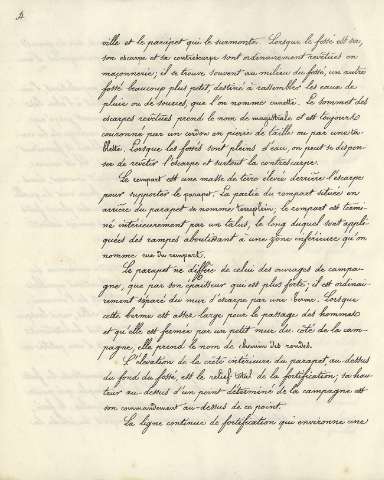 4
ville et le parapet qui le surmonte. Lorsque le fossé est sec,
son escarpe et sa contrescarpe sont ordinairement revêtues en
maçonnerie; il se trouve souvent au milieu du fossé, un autre
fossé beaucoup plus petit, destiné à rassembler les eaux de
pluie ou de sources, que l'on nomme cunette. Le sommet des
escarpes revêtues prend le nom de magistrale et est toujours
couronné par un cordon en pierre de taille ou par une ta-
blette. Lorsque les fossés sont pleins d'eau, on peut se dispen-
ser de revêtir l'escarpe et surtout la contrescarpe.
Le rempart est une masse de terre élevée derrière l'escarpe
pour supporter le parapet. La partie du rempart située en
arrière du parapet se nomme terreplein; le rempart est termi-
né intérieurement par un talus, le long duquel sont appli-
quées des rampes aboutissant à une zône inférieure qu'on
nomme rue du rempart.
Le parapet ne diffère de celui des ouvrages de campa-
gne, que par son épaisseur qui est plus forte; il est ordinai-
rement séparé du mur d'escarpe par une berme. Lorsque
cette berme est assez large pour le passage des hommes
et qu'elle est fermée par un petit mur du côté de la cam-
pagne, elle prend le nom de chemin des rondes.
L'élévation de la crête intérieure du parapet au-dessus
du fond du fossé, est le relief total de la fortification; sa hau-
teur au-dessus d'un point déterminé de la campagne est
son commandement au-dessus de ce point.
La ligne continue de fortification qui environne une